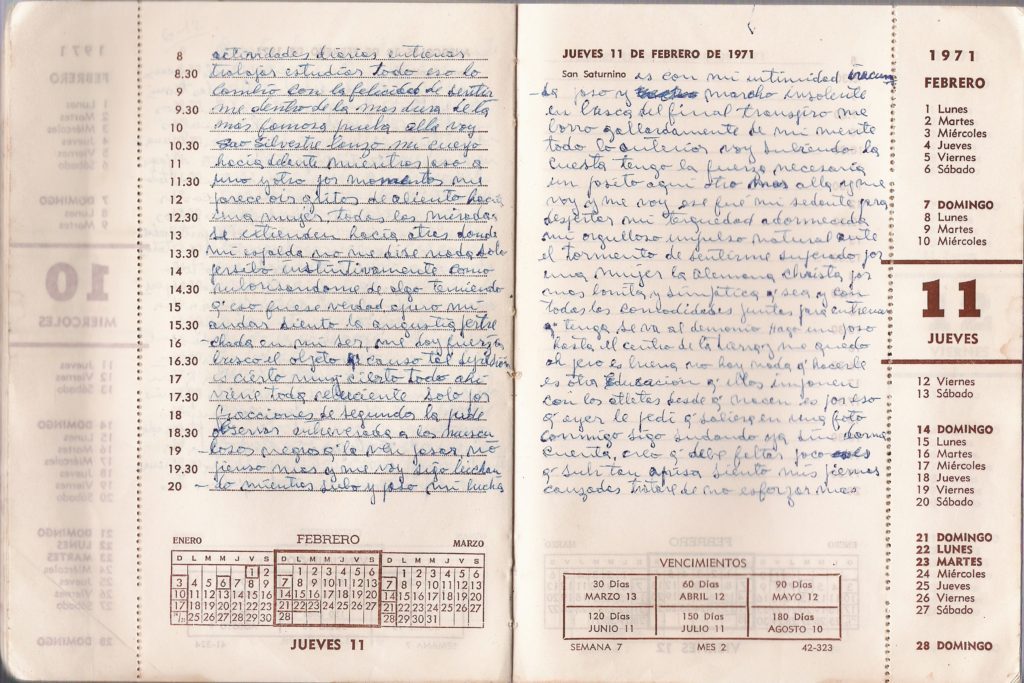 8 actividades diarias entrenar
8.30 trabajar estudiar todo eso lo
9 cambio con la felicidad de sentir
9.30 me dentro de la mas dura de la
10 más famosa prueba alla voy
10.30 Sao Silvestre lanzo mi cuerpo
11 hacia delante mientras paso a
11.30 uno y otro por momentos me
12 parece oir gritos de aliento hacia
12.30 una mujer todas las miradas
13 se extienden hacia atres donde
13.30 mi espalda no me dise nada solo
14 persibo instintivamente como
14.30 ruborisandome de algo temiendo
15 q' eso fuese verdad apuro mi
15.30 andar siento la angustia pertre
16 -chada en mi ser, me doy fuerza
16.30 busco el objeto q' causo tal
17 es cierto muy cierto todo ahi
17.30 viene toda reluciente solo por
18 fracciones de segundo la pude
18.30 observar entre los muscu
19 -losos negros q' la ven pasar, no
19.30 pienso mas y me voy sigo luchan
20 -do mientras subo y paso mi lucha
ENERO FEBRERO MARZO
D L M M J V S D L M M J V S D L M M J V S
1 2 1 2 3 4 5 6 1 2 3 4 5 6
3 4 5 6 7 8 9 7 8 9 10 11 12 13 7 8 9 10 11 12 13
10 11 12 13 14 15 16 14 15 16 17 18 19 20 14 15 16 17 18 19 20
17 18 19 20 21 22 23 21 22 23 24 25 26 27 21 22 23 24 25 26 27
24/31 25 26 27 28 29 30 28 28 29 30 31
JUEVES 11
JUEVES 11 DE FEBRERO DE 1971
San Saturnino es con mi intimidad iracun
-da paso y marcho insolente
en busca del final transpiro me
borro gallardamente de mi mente
todo lo anterior voy subiendo la
cuesta tengo la fuerza necesaria
un pasito aqui otro mas alla y me
voy y me voy ese fué mi sedante para
despertar mi terquedad adormecida
mi orgulloso impulso natural ante
el tormento de sentirme superado por
una mujer la Alemana Christa por
mas bonita y simpática q' sea y con
todas las comodidades juntas para entrenar
q' tenga se va al demonio Hago un paso
hasta el centro de la tierra y me quedo
ah pero es buena no hay nada q' hacerle
es otra Educacion q' ellos imponen
con los atletas desde q' nacen es por eso
q' ayer le pedi q' saliese en una foto
conmigo sigo sudando ya sin darme
cuenta, creo q' debe faltar poco
q' subitan aprisa siento mis piernas
canzadas tratare de no esforzar mas
VENCIMIENTOS
30 Días 60 Días 90 Días
MARZO 13 ABRIL 12 MAYO 12
120 Días 150 Días 180 Días
JUNIO 11 JULIO 11 AGOSTO 10
SEMANA 7 MES 2 42-323
1971
FEBRERO
1 Lunes
2 Martes
3 Miércoles
4 Jueves
5 Viernes
6 Sábado
7 DOMINGO
8 Lunes
9 Martes
10 Miércoles
11
JUEVES
12 Viernes
13 Sábado
14 DOMINGO
15 Lunes
16 Martes
17 Miércoles
18 Jueves
19 Viernes
20 Sábado
21 DOMINGO
22 LUNES
23 MARTES
24 Miércoles
25 Jueves
26 Viernes
27 Sábado
28 DOMINGO